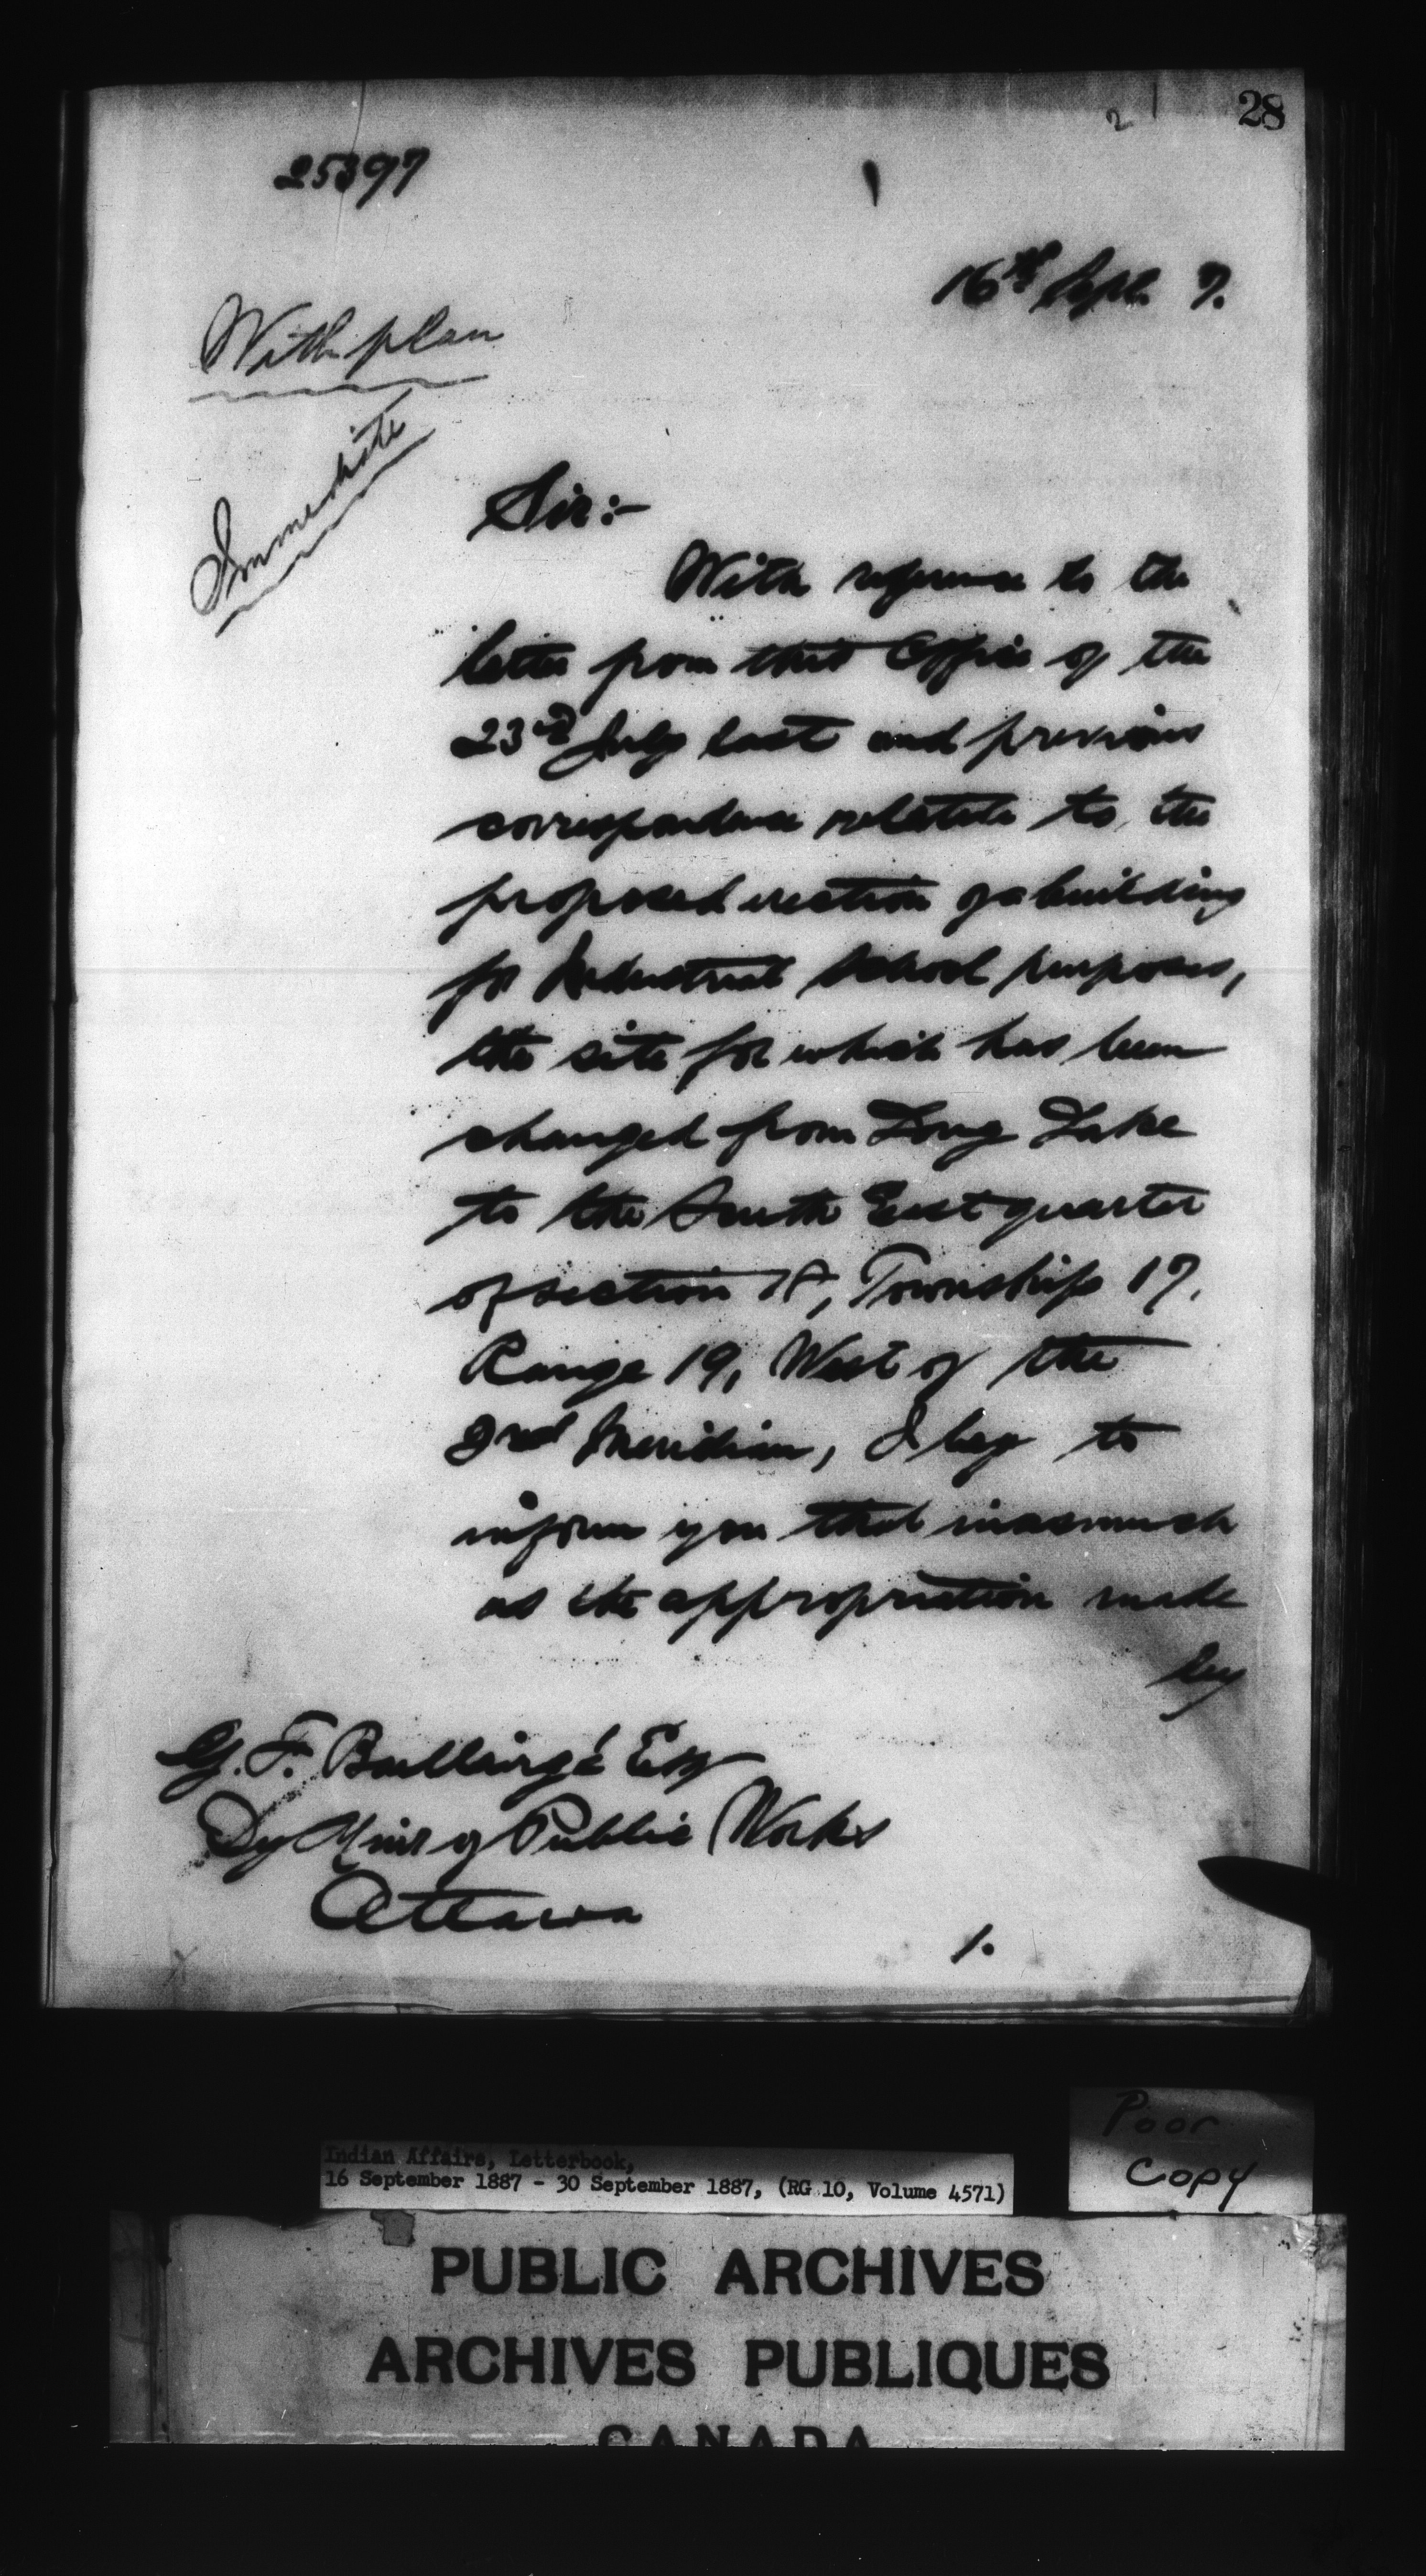 28
2
25397
16th Sept. 7.
With plan
Immediate
Sir:-
With reference to the
letter from this Office of the
23rd July last and previous
correspondence relative to the
proposed erection of a building
for Industrial School purposes,
the site for which has been
changed from Long Lake
to the South East quarter
of section Township 17,
Range 19, West of the
2nd Meridian, I beg to
inform you that inasmuch
as the appropriation made
by
G. F. Baillairgé Esq
Dy Minr of Public Works
Ottawa
1.
Poor
Copy
Indian Affairs, Letterbook,
16 September 1887 - 30 September 1887, (RG 10, Volume 4571)
PUBLIC ARCHIVES
ARCHIVES PUBLIQUES
CANADA